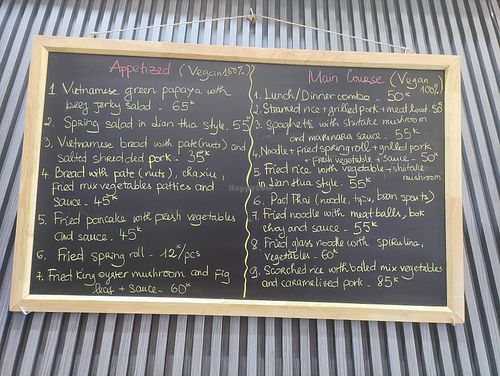 Appetized (Vegan 100%)
1. Vietnamese green papaya with
beef jerky salad - 65K
2. Spring salad in dian tha style. 55K
3, Vietnamese bread with pate (nuts) and
salted shredded pork - 35K
4. Bread with pate (nuts), chaxiu,
fried mix vegetables patties and
sauce - 45K
5. Fried pancake with fresh vegetables
and sauce - 45K
6. Fried spring roll - 12K/pcs
7. Fried king oyster mushroom and Fig
leaf + sauce - 60K
Main Course (Vegan
100%)
1. Lunch/Dinner combo - 50K
2. Steamed rice + grilled pork + meat loaf. 50
3. Spaghetti with shitake mushroom
and marinara sauce - 55K
4, Noodle + fried spring roll + grilled pork
+ fresh vegetable + sauce - 50K
5. Fried rice with vegetable + shitake
mushroom
in Dian tha style. 55K
6. Pad Thai (noodle, tofu, bean sprouts)
7. Fried noodle with meat balls, bok
choy and sauce - 55K
8. Fried glass noodle with spirulina,
vegetables - 60K
9. Scorched rice with boiled mix vegetables
and caramelized pork - 85K